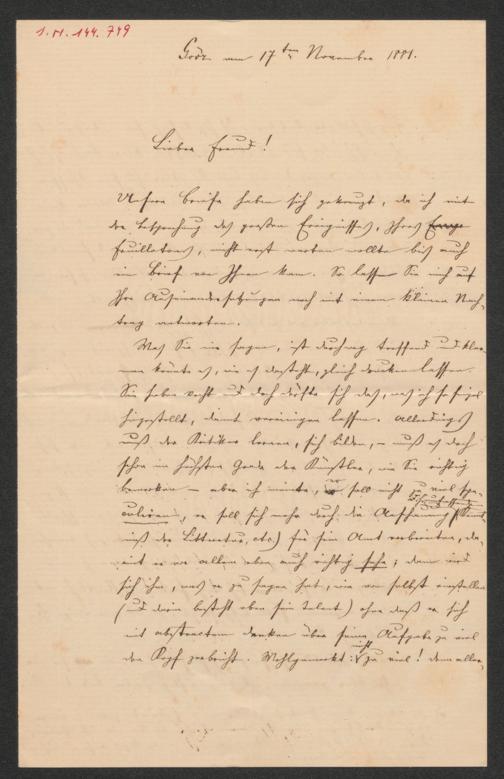 I.N. 144.749
Görz am 17ten November 1881.
Lieber Freund!
Unsere Briefe haben sich gekreuzt, da ich mit
der Besprechung des großen Ereignisses, Ihres
Feuilletons, nicht erst warten wollte bis auch
ein Brief von Ihnen kam. So lassen Sie mich auf
Ihre Auseinandersetzungen noch mit einem kleinen Nach-
trag antworten.
Was Sie mir sagen, ist durchweg treffend und
man könnte es, wie es dasteht, gleich drucken lassen.
Sie haben recht und doch dürfte sich das, was ich
hingestellt, damit vereinigen lassen. Allerdings
muß der Kritiker lernen, sich bilden, – muß es doch
schon im höchsten Grade der Künstler, wie Sie richtig
bemerken – aber ich meinte, er soll nicht zu viel spe-
culiren, er soll sich mehr durch die Anschauung
niß der Litteratur, etc.) für sein Amt vorbereiten, da-
mit er vor allem aber auch richtig sehe; dann wird
sich ihm, was er zu sagen hat, wie von selbst einstellen
(und darin besteht eben sein Talent) ohne daß er sich
mit abstractem Denken über seine Aufgabe zu viel
den Kopf zerbricht. Wohlgemerkt: nicht zu viel! denn allen